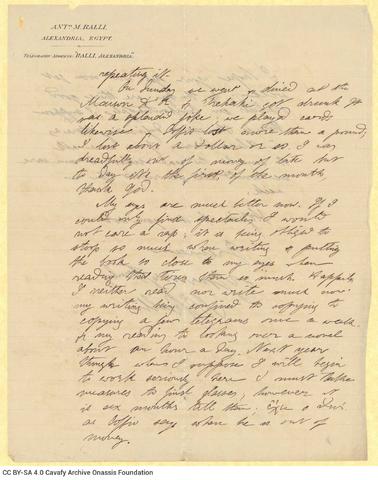 ANT. M. RALLI.
ALEXANDRIA, EGYPT.
TELEGRAPHIC ADDRESS: "RALLI, ALEXANDRIA."
repeating it.
On Sunday we went & dined at the
Maison & got drunk. It
was a splendid joke; we played cards
likewise. lost more than a pound,
I lost about a dollar or so I was
dreadfully out of money of late but
to day it's the first of the month,
thank God.
My eyes are much better now. If I
could only find spectacles I would
not care a rap; it is being obliged to
stoop so much when writing & putting
the book so close to my eyes when
reading that tires them so much. Happily
I neither read nor write much now
my writing being confined to
copying a few telegrams once a week
or my reading to looking over a novel
about an hour a day. Next year
though when I suppose I will begin
to work seriously here I must take
measures to find glasses; however it
is six months till then.
as says when he is out of
money.
CC BY-SA 4.0 Cavafy Archive Onassis Foundation